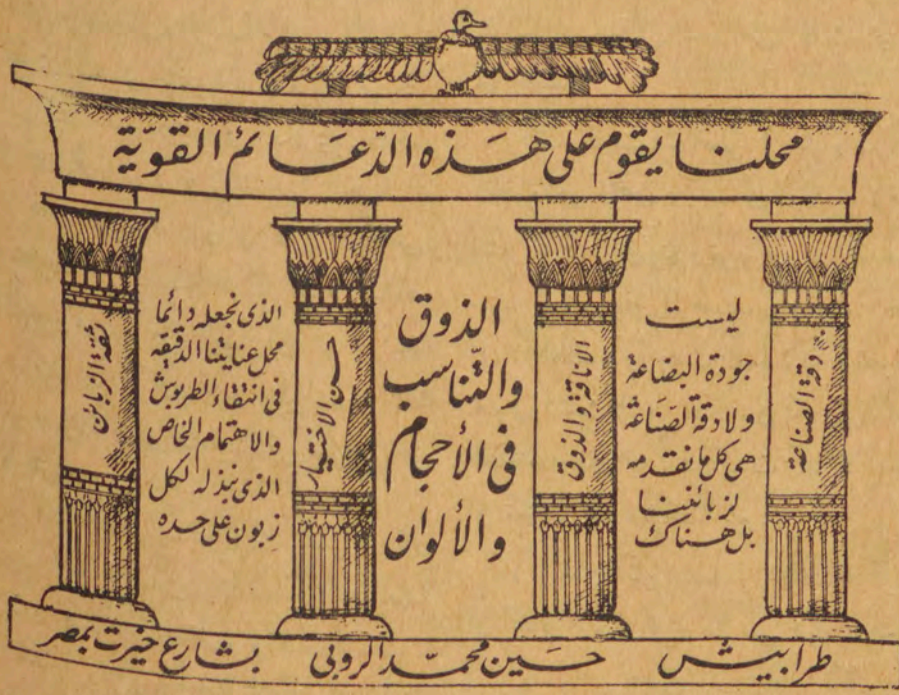 محلّنا يقوم على هذه الدّعائم القويّة
دقة الصناعة
ليست
جودة البضاعة
ولا دقة الصَنَاعَة
هى كل ما نقدمه
لزبائننا
بل هناك
الاناقة والذوق
الذوق
والتّناسب
فى الأحجام
والألوان
حسن الاختيار
الذى نجعله دائما
محل عنايتنا الدقيقه
فى انتقاء الطربوش
والاهتمام الخاص
الذى نبذله لكل
زبون على حده
ثقة الزبائن
طرابيش حسَين محمّد الروبى بشارع خيرت بمصر